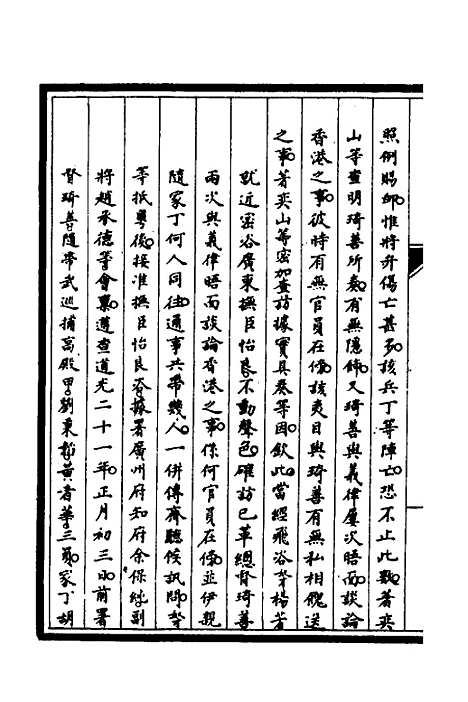 照例賜卹惟將弁傷亡甚多該兵丁等陣亡恐不止此數著奕
山等查明琦善所奏有無隱飾又琦善與義律屢次晤面談論
香港之事彼時有無官員在傍該夷目與琦善有無私相餽送
之事著奕山等密加查訪據實具奏等因欽此當經飛咨參楊芳
就近密咨廣東撫臣怡良不動聲色確訪已革總督琦善
兩次與義律晤面談論香港之事係何官員在傍並伊親
隨家丁何人同往通事共帶幾人一併傳齊聽候訊問等
等抵粵後接准撫臣怡良咨據署廣州府知府余保純副
將趙承德等會稟遵查道光二十一年正月初三日前署
督琦善隨帶武巡捕寫殿甲劉東黃者華三員家丁胡